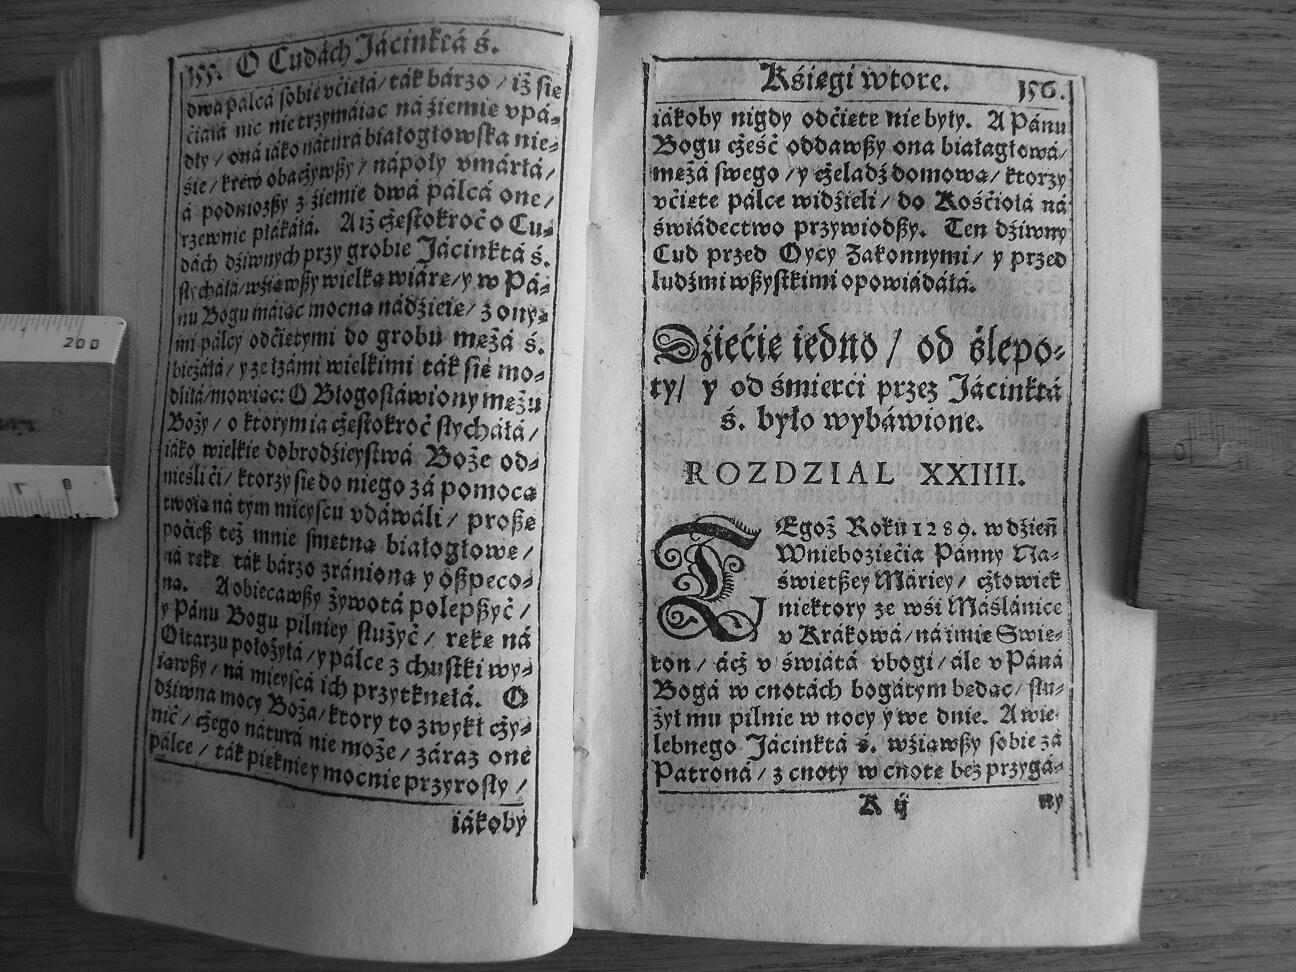 155. O Cudách Jácinktá ś.
dwá pálcá sobie vćiełá/ták bárzo / iż sie
ćiáłá nic nie trzymáiąc ná źiemie vpá-
dły / oná iáko náturá białogłowska nie-
śie / krew obaczywszy / nápoły vmárłá /
á podniozszy z źiemie dwá pálcá one /
rzewnie płákáłá. A iż częstokroć o Cu-
dách dźiwnych przy grobie Jácinktá ś.
słycháłá/wźiąwszy wielką wiárę/y w Pá-
nu Bogu máiąc mocną nádźieię / z ony-
mi pálcy odćiętymi do grobu mężá ś.
bieżáłá / y ze łzámi wielkimi ták sie mo-
dliłá/mowiąc: O Błogosłáwiony mężu
Boży / o ktorym ia częstokroć słycháłá /
iáko wielkie dobrodźieystwá Boże od-
nieśli ći / ktorzy sie do niego zá pomocą
twoią ná tym mieyscu vdáwáli / proszę
poćiesz też mnie smętną białogłowę /
ná rękę ták bárzo zránioną y oszpeco-
ną. A obiecawszy żywotá polepszyć /
y Pánu Bogu pilniey służyć / rękę ná
Ołtarzu położyłá / y pálce z chustki wy-
iąwszy / ná mieyscá ich przytknęłá. O
dźiwna mocy Boża/ktory to zwykł czy-
nić / czego náturá nie może / záraz one
pálce / ták pięknie y mocnie przyrosły /
iákoby
Kśięgi wtore. 156.
iákoby nigdy odćięte nie były. A Pánu
Bogu cześć oddawszy ona białagłowá/
mężá swego / y czeladź domową / ktorzy
vćięte pálce widźieli / do Kośćiołá ná
świádectwo przywiodszy. Ten dźiwny
Cud przed Oycy Zakonnymi / y przed
ludźmi wszystkimi opowiádáłá.
Dźiećię iedno / od ślepo-
ty/ y od śmierći przez Jácinktá
ś. było wybáwione.
ROZDZIAL XXIIII.
TEgoż Roku 1289. w dźień
Wniebowźięćia Pánny Na-
świętszey Máriey / człowiek
niektory ze wśi Máślánice
v Krákowá / ná imię Swię-
ton / ácz v świátá vbogi / ále v Páná
Bogá w cnotách bogátym będąc / słu-
żył mu pilnie w nocy y we dnie. A wie-
lebnego Jácinktá ś. wźiąwszy sobie zá
Patroná / z cnoty w cnotę bez przygá-
K ij ny